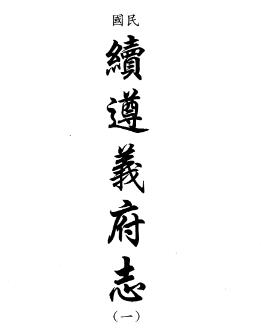 國民
續遵義府志
(一)